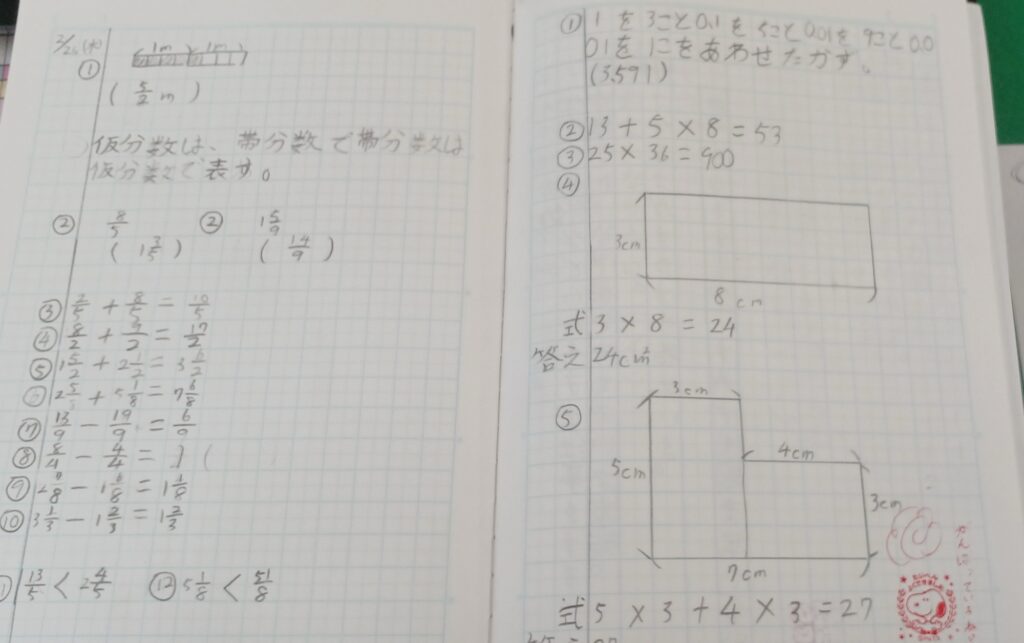 2/24(木)
① 1m 1m
( 5/2 m )
仮分数は、帯分数で帯分数は
仮分数で表す。
② 8/5 ② 1 5/9
( 1 3/5 ) ( 14/9 )
③ 2/5 + 8/5 = 10/5
④ 8/2 + 9/2 = 17/2
⑤ 1 5/2 + 2 1/2 = 3 6/2
2 5/ + 5 1/8 = 7 6/8
⑦ 13/9 - 19/9 = 6/9
⑧ 8/4 - 4/4 = 1 (
⑨ 2 7/8 - 1 6/8 = 1 1/8
⑩ 3 1/3 - 1 2/3 = 1 2/3
13/5 < 2 4/5 ⑫ 5 1/8 < 51/8
① 1を3こと0.1を5こと0.01を9こと0.0
01を1こをあわせたかす。
(3.591)
② 13 + 5 × 8 = 53
③ 25 × 36 = 900
④
3cm
8cm
式 3 × 8 = 24
答え 24cm²
⑤
3cm
5cm
4cm
3cm
7cm
式 5 × 3 + 4 × 3 = 27